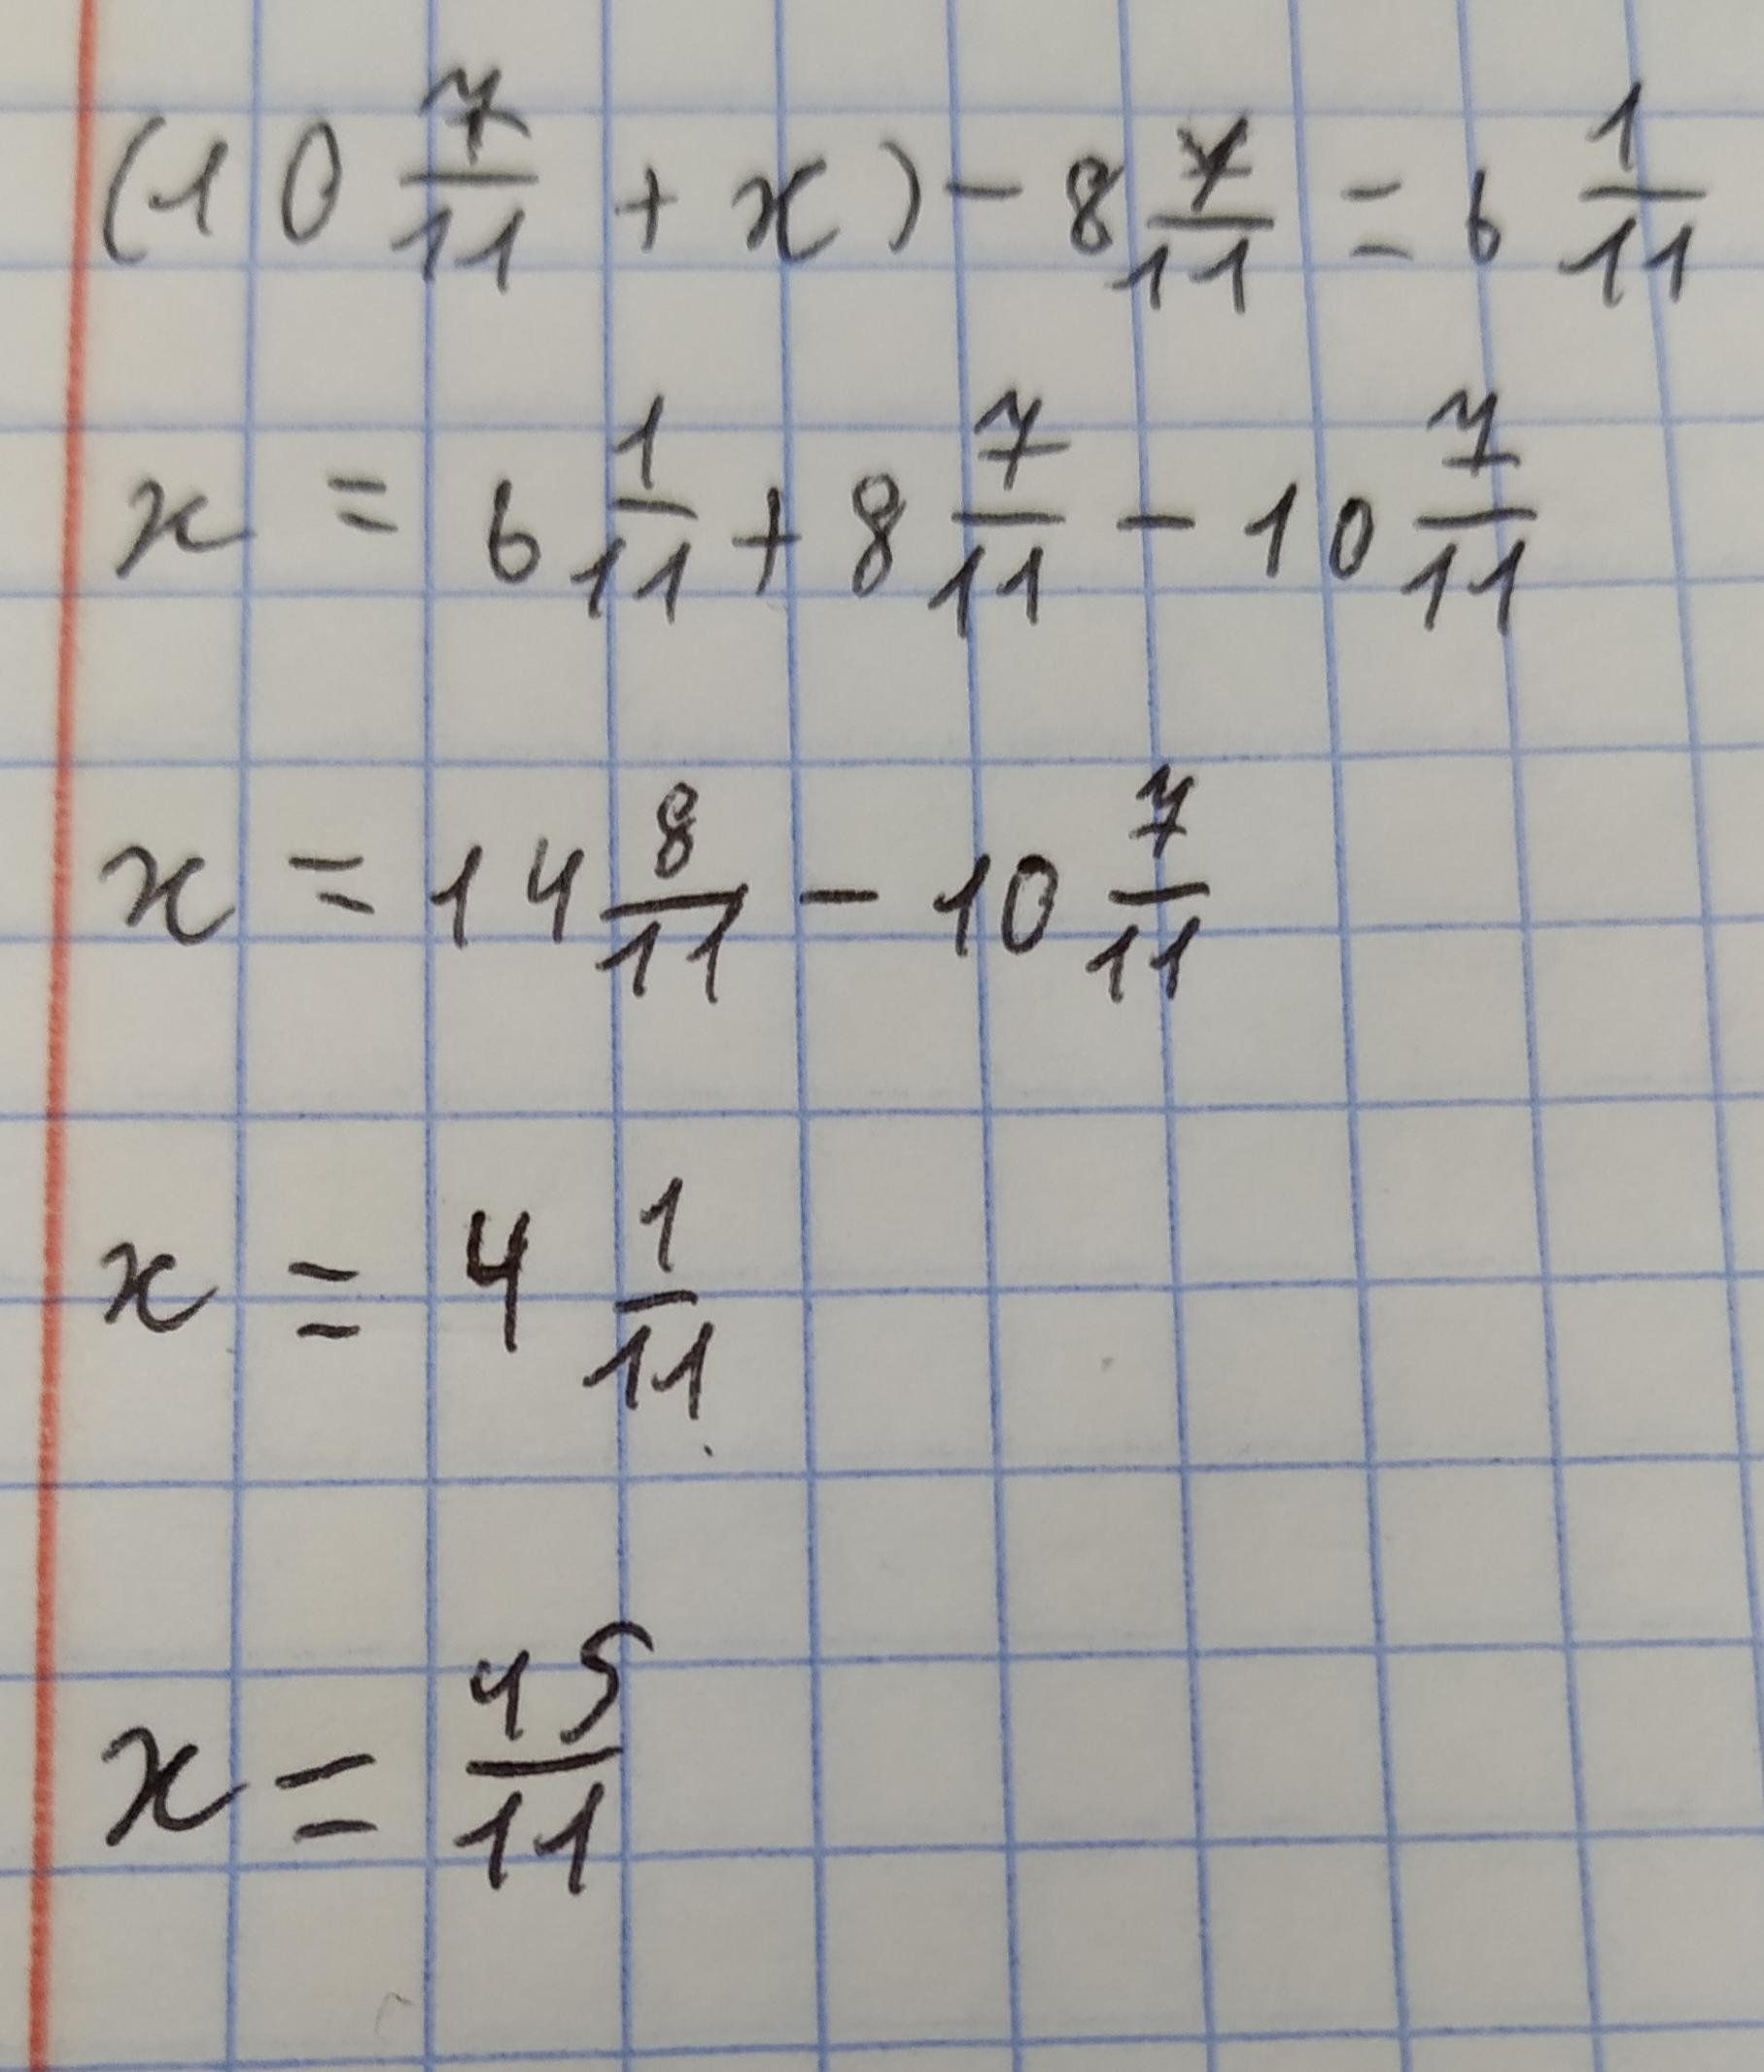 (10 7/11 + x) - 8 7/11 = 6 1/11
x = 6 1/11 + 8 7/11 - 10 7/11
x = 14 8/11 - 10 7/11
x = 4 1/11
x = 45/11